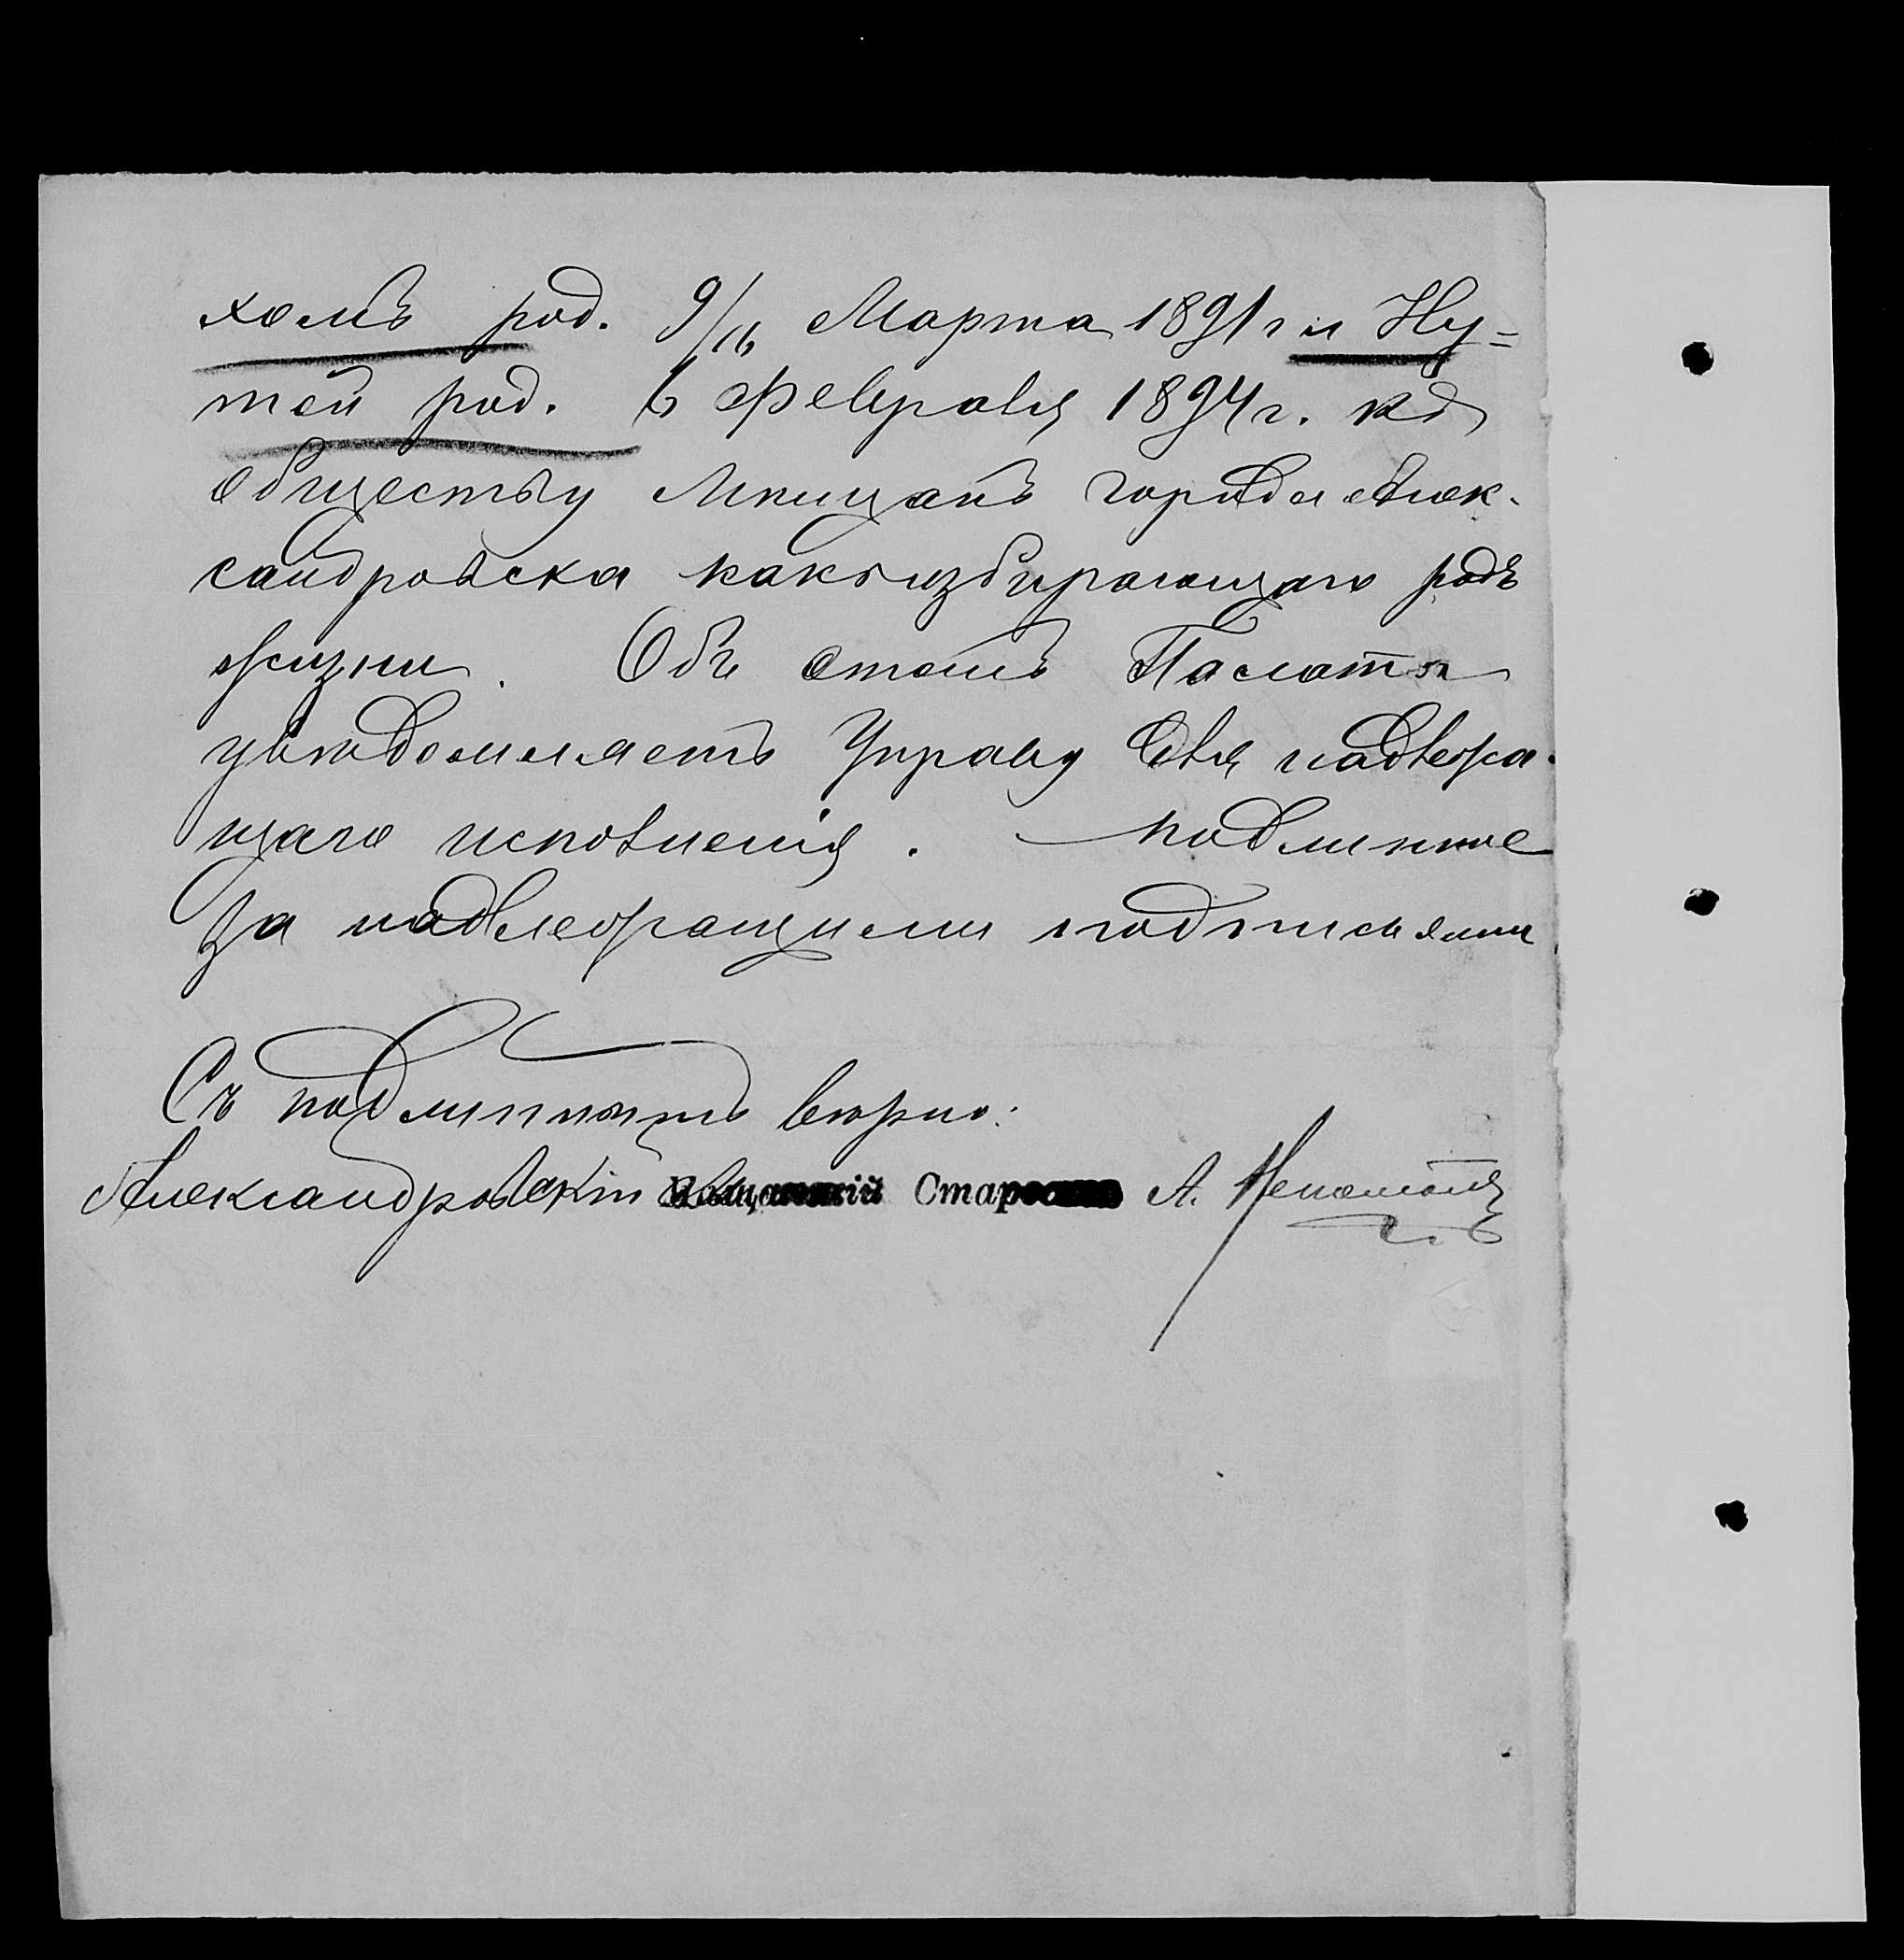 хомъ род. 9/16 Марта 1891 г и Ну=
той род. 6 Февраля 1894 г. къ
обществу Мѣщанъ города Алек-
сандровска какъ избирающаго родъ
жизни. Объ этомъ Палата
увѣдомляетъ Управу для надлежа-
щаго исполненія. Подлинное
за надлежащими подписями
Съ подлиннымъ вѣрно:
Александровскій Мѣщанскій Староста А.